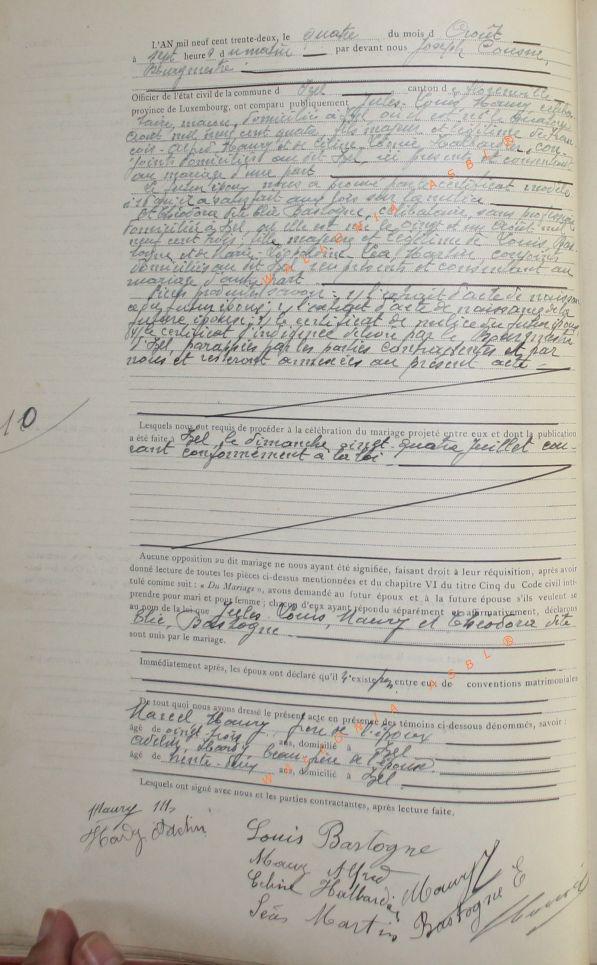 L'AN mil neuf cent trente-deux, le quatre du mois d Août
à sept heures d u matin par devant nous Joseph Cousin,
Bourgmestre.
Officier de l'état civil de la commune d Izel canton d Florenville
province de Luxembourg, ont comparu publiquement Jules Louis Maury
domicilié à Izel où il est né le quatre
Août mil neuf cent quatre, fils majeur et légitime de
Alfred Maury et de Céline Halbardier, con-
joints domiciliés au dit Izel ici présents et consentant
au mariage d'une part
Le futur époux nous a prouvé par le certificat modèle
qu'il a satisfait aux lois sur la milice.
Et Théodora dite Elie Bastogne, célibataire, sans profession
domiciliée à Izel, où elle est née le cinq Août mil
neuf cent fille majeure et légitime de Louis Bas-
togne et de Marie Léa Martin conjoints
domiciliés au dit Izel, ici présents et consentant au
mariage d'autre part
Pièces produites savoir: 1/ l'extrait d'acte de naissan-
ce du futur époux; 2/ l'extrait d'acte de naissance de la
future épouse; 3/ le certificat de milice du futur époux
le certificat d'indigence délivré par le Bourgmestre
d'Izel, paraphées par les parties contractantes et par
nous et resteront annexées au présent acte
10
Lesquels nous ont requis de procéder à la célébration du mariage projeté entre eux et dont la publication
a été faite à Izel, le dimanche vingt-quatre Juillet cou-
rant conformément à la loi
Aucune opposition au dit mariage ne nous ayant été signifiée, faisant droit à leur réquisition, après avoir
donné lecture de toutes les pièces ci-dessus mentionnées et du chapitre VI du titre Cinq du Code civil inti-
tulé comme suit : « Du Mariage », avons demandé au futur époux et à la future épouse s'ils veulent se
prendre pour mari et pour femme ; chacun d'eux ayant répondu séparément et affirmativement, déclarons
au nom de la loi que Jules Louis, Maury et Théodora dite
Elie, Bastogne
sont unis par le mariage.
Immédiatement après, les époux ont déclaré qu'il n'existe pas entre eux de conventions matrimoniales
De tout quoi nous avons dressé le présent acte en présence des témoins ci-dessous dénommés, savoir :
Marcel, Maury, frère de l'époux
âgé de vingt-trois ans, domicilié à Izel
Adelin, Hardy, beau-frère de l'épouse
âgé de trente-cinq ans, domicilié à Izel
Lesquels ont signé avec nous et les parties contractantes, après lecture faite,
Maury M.
Hardy Adelin
Louis Bastogne
Maury Alfred
Céline Halbardier Maury J
Léas Martin Bastogne E
WALLONIA ASBL ®
WALLONIA ASBL ®